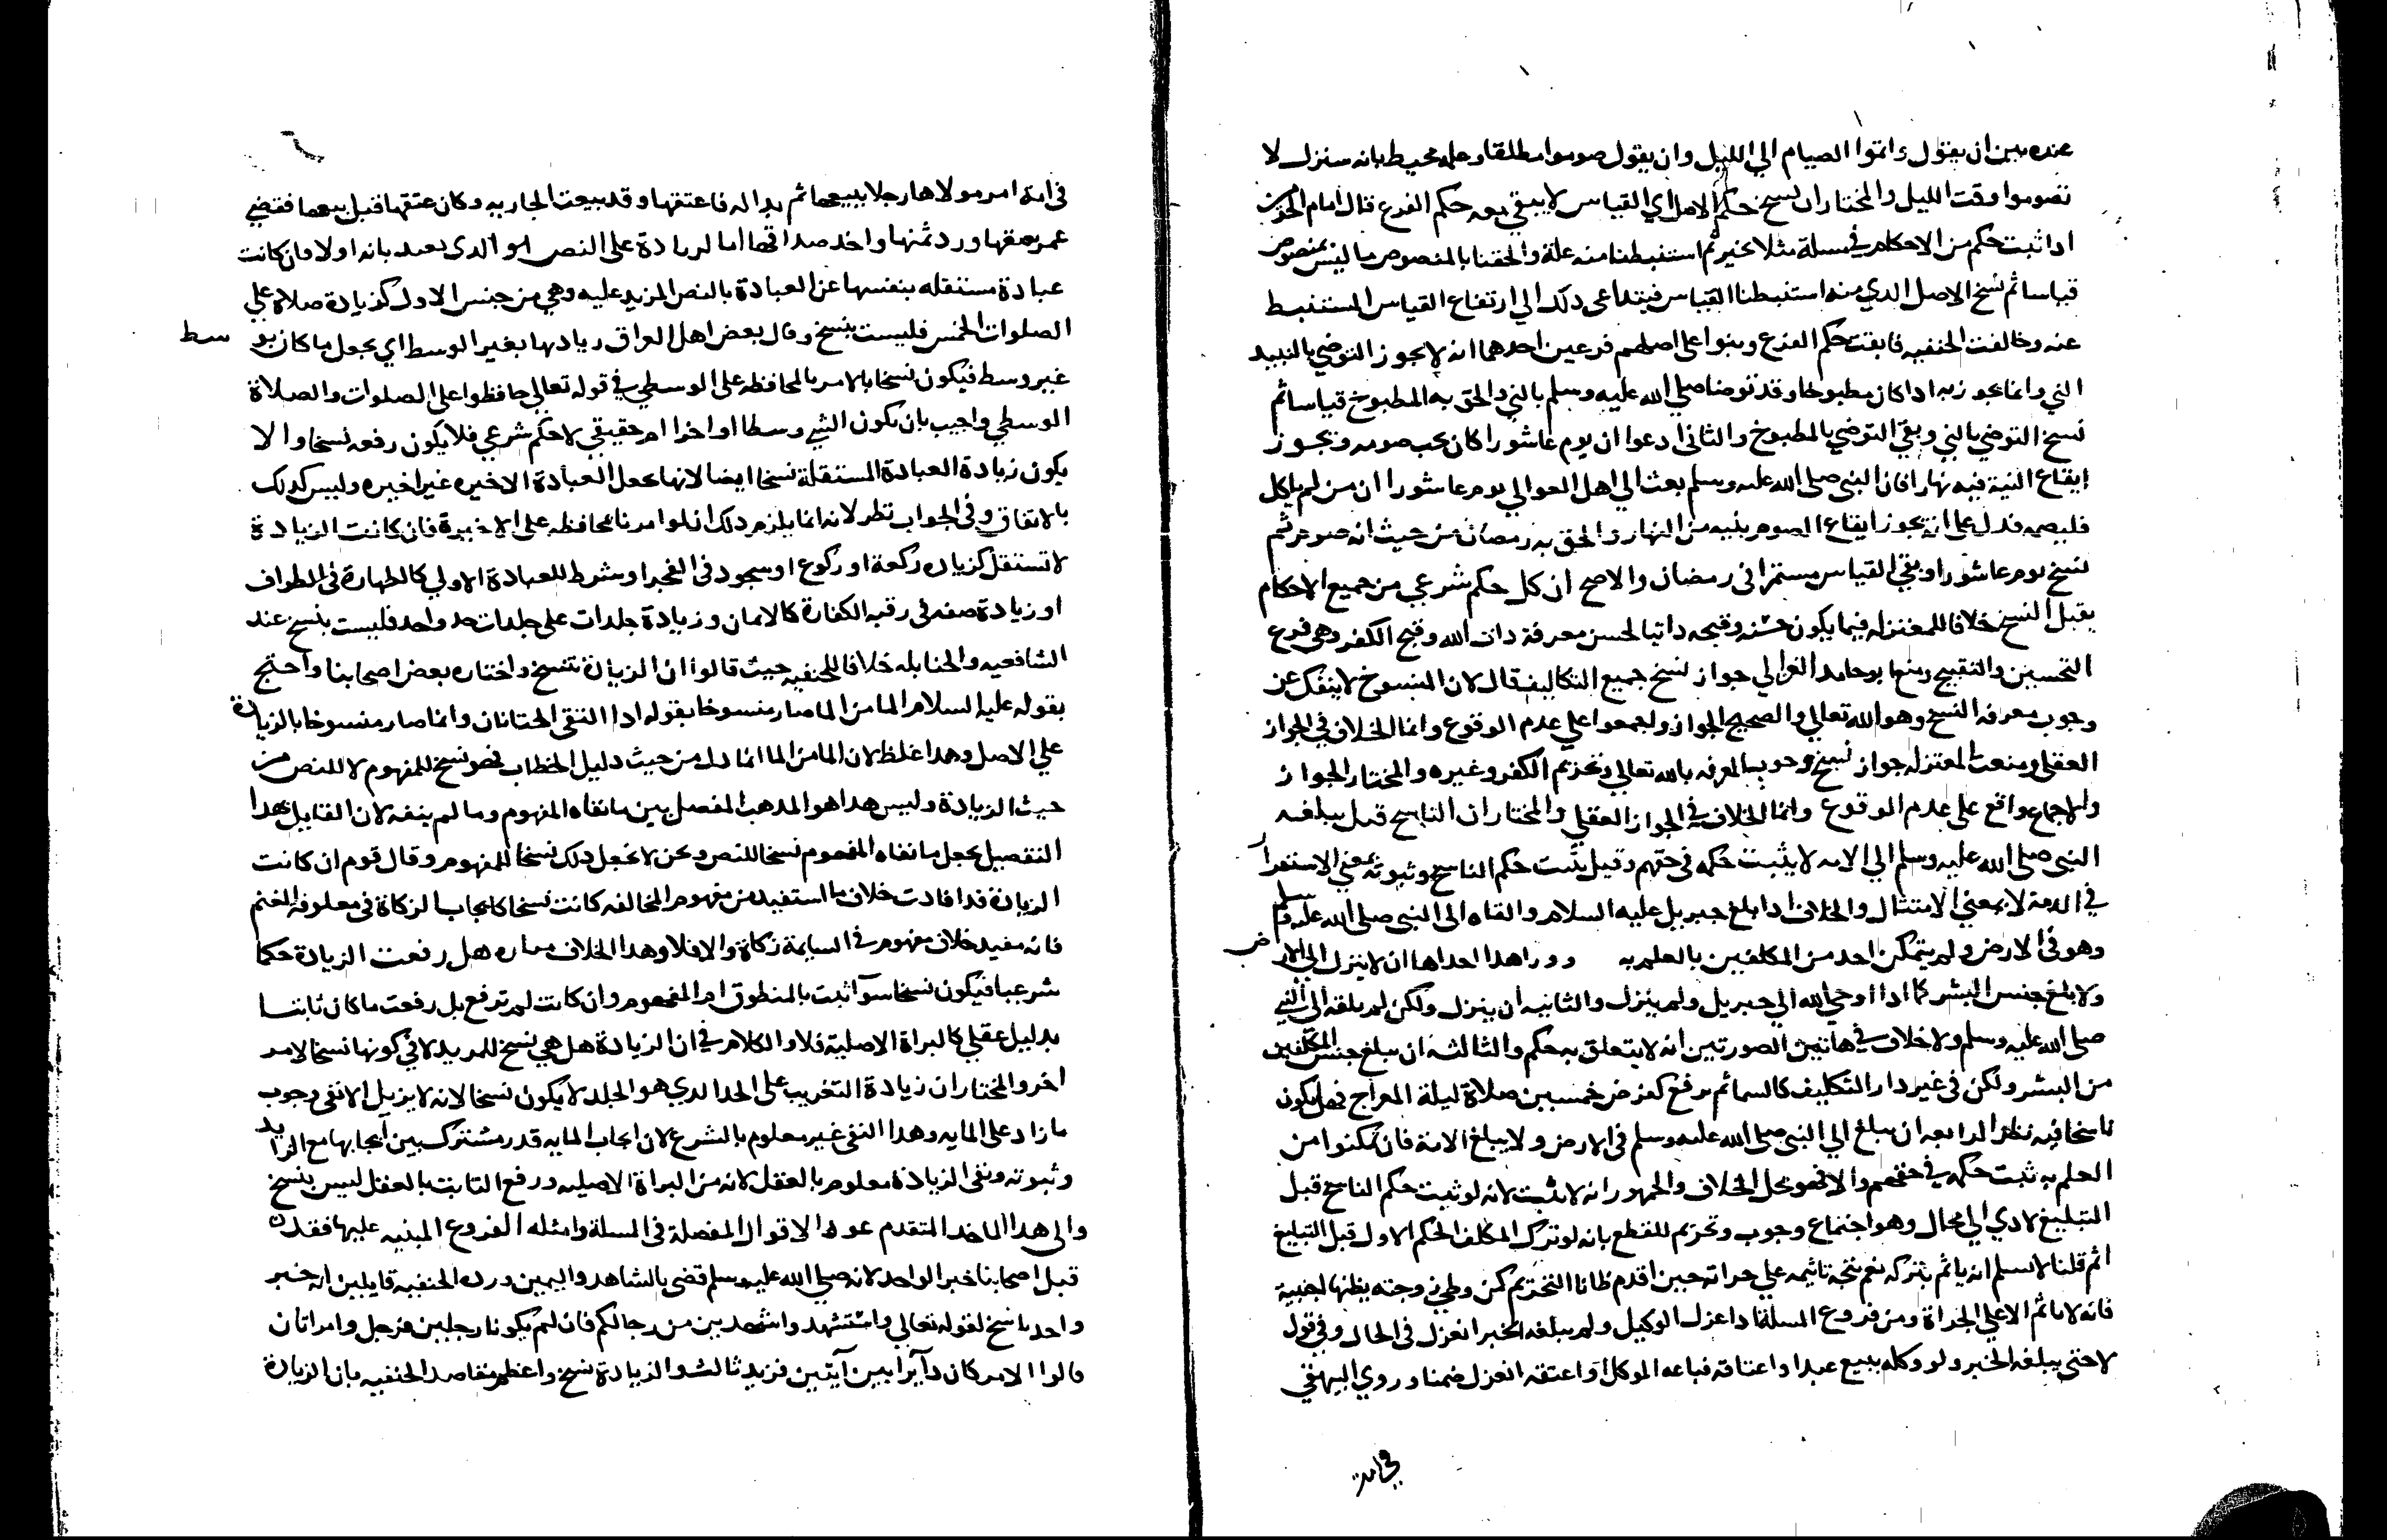 عنده بين ان يقول واتموا الصيام الي الليل وان يقول صوموا مطلقا وعلمه محيط بانه سنزل لا
تصوموا وقت الليل والمختار ان نسخ حكم الاصل اي القياس لا يبقي معه حكم الفرع قال امام الحرمين
ادا ثبت حكم من الاحكام في مسلة مثلا بخبر ثم استنبطنا منه علة والحقنا بالمنصوص ما ليس بمنصوص
قياسا ثم نسخ الاصل الدي منه استنبطنا القياس فيتداعى دلك الي ارتفاع القياس المستنبط
عنه وخالفت الحنفيه فابقت حكم الفرع وبنوا على اصلهم فرعين احدهما انه لا يجوز التوضي بالنبيد
الني وانما يجوز به ادا كان مطبوخا وقد توضا صلي الله عليه وسلم بالني والحق به المطبوخ قياسا ثم
نسخ التوضي بالني وبقي التوضي بالمطبوخ والثاني ادعوا ان يوم عاشورا كان يجب صومه ويجوز
ايقاع النية فيه نهارا فان النبي صلى الله عليه وسلم بعث الي اهل العوالي يوم عاشورا ان من لم ياكل
فليصم فدل على انه يجوز ايقاع الصوم بنيه من النهار والحق به رمضان من حيث انه صوم ثم
نسخ يوم عاشورا وبقي القياس مستمرا في رمضان والاصح ان كل حكم شرعي من جميع الاحكام
يقبل النسخ خلافا للمعتزله فيما يكون حسنه وقبحه داتيا لحسن معرفة دات الله وقبح الكفر وهي فرع
التحسين والتقبيح ومنع ابو حامد الغزالي جواز نسخ جميع التكاليف قال لان المنسوخ لا ينفك عن
وجوب معرفه النسخ وهو الله تعالي والصحيح الجواز واجمعوا علي عدم الوقوع وانما الخلاف في الجواز
العقلي ومنعت المعتزله جواز نسخ وجوب المعرفه بالله تعالي وتحريم الكفر وغيره والمختار الجواز
والاجماع واقع على عدم الوقوع وانما الخلاف في الجواز العقلي والمختار ان الناسخ قبل يبلغه
النبي صلى الله عليه وسلم الي الامه لا يثبت حكمه في حقهم وقيل يثبت حكم الناسخ وثبوته بمعني الاستقرار
في الدمة لا بمعني الامتثال والخلاف ادا بلغ جبريل عليه السلام والقاه الى النبي صلى الله عليه وسلم
وهو في الارض ولم يتمكن احد من المكلفين بالعلم به وورا هدا احداها ان لا ينزل الي الارض
ولا بلغ جنس البشر كما ادا اوحي الله الي جبريل ولم ينزل والثانيه ان ينزل ولكن لم يلقه الى النبي
صلى الله عليه وسلم ولا خلاف في هاتين الصورتين انه لا يتعلق به حكم والثالثه ان يبلغ جنس المكلفين
من البشر ولكن في غير دار التكليف كالسما ثم يرفع كفرض خمسين صلاة ليلة المعراج فهل يكون
ناسخا فيه نظر الرابعه ان يبلغ الي النبي صلى الله عليه وسلم في الارض ولا يبلغ الامة فان تمكنوا من
العلم به ثبت حكمه في حقهم والا فهو محل الخلاف والجمهور انه لا يثبت لانه لو ثبت حكم الناسخ قبل
التبليغ لادي الي محال وهو اجتماع وجوب وتحريم للقطع بانه لو ترك المكلف الحكم الاول قبل التبليغ
اثم قلنا لا نسلم انه ياثم بتركه نعم يتجه تاثيمه علي جراته حين اقدم ظانا التحريم كمن وطي زوجته يظنها اجنبية
فانه لا ياثم الا علي الجراة ومن فروع المسلة ادا عزل الوكيل ولم يبلغه الخبر انعزل في الحال وفي قول
لا حتى يبلغه الخبر ولو وكله ببيع عبد او اعتاقه فباعه الموكل او اعتقه انعزل ضمنا وروي البيهقي
في امة
في امة امر مولاها رجلا ببيعها ثم بدا له فاعتقها وقد بيعت الجاريه وكان عتقها قبل بيعها فقضي
عمر بعتقها ورد ثمنها واخد صداقها اما الزيادة على النص هو الدي يعبد بانه اولا فان كانت
عبادة مستقله بنفسها عن العبادة بالنص المزيد عليه وهي من جنس الاول كزيادة صلاة علي
الصلوات الخمس فليست بنسخ وقال بعض اهل العراق زيادتها بغير الوسط اي يجعل ما كان بو سط
غير وسط فيكون نسخا بالامر بالمحافظه على الوسطي في قوله تعالي حافظوا على الصلوات والصلاة
الوسطي واجيب بان يكون الشي وسطا او اخرا امر حقيقي لا حكم شرعي فلا يكون رفعه نسخا والا
يكون زيادة العبادة المستقلة نسخا ايضا لانها تجعل العبادة الاخيره غير اخيره وليس كدلك
بالاتفاق وفي الجواب نظر لانه انما يلزم دلك ان لو امرنا بمحافظه على الاخيرة فان كانت الزيادة
لا تستقل كزياده ركعة او ركوع او سجود في الفجر او شرط للعبادة الاولي كالطهارة في الطواف
او زيادة صفه في رقبه الكفارة كالايمان وزيادة جلدات على جلدات حد واحد فليست بنسخ عند
الشافعيه والحنابله خلافا للحنفيه حيث قالوا ان الزيادة نسخ واختاره بعض اصحابنا واحتج
بقوله عليه السلام الما من الما صار منسوخا بقوله ادا التقي الختانان وانما صار منسوخا بالزيادة
علي الاصل وهدا غلط لان الما من الما انما دل من حيث دليل الخطاب فهو نسخ للمفهوم لا للنص من
حيث الزيادة وليس هدا هو المدهب المفصل بين ما نفاه المفهوم وما لم ينفه لان القايل بهدا
التفصيل يجعل ما نفاه المفهوم نسخا للنص ونحن لا نجعل دلك نسخا للمفهوم وقال قوم ان كانت
الزيادة قد افادت خلاف ما استفيد من مفهوم المخالفه كانت نسخا كايجاب الزكاة في معلوفة الغنم
فانه مفيد خلاف مفهوم في السايمة زكاة والا فلا وهدا الخلاف مداره هل رفعت الزيادة حكما
شرعيا فيكون نسخا سوآ ثبت بالمنطوق ام المفهوم وان كانت لم ترفع بل رفعت ما كان ثابتا
بدليل عقلي كالبراة الاصلية فلا والكلام في ان الزيادة هل هي نسخ للمزيد لا في كونها نسخا لامر
اخر والمختار ان زيادة التغريب على الحد الدي هو الجلد لا يكون نسخا لانه لا يزيل الا نفي وجوب
ما زاد على المايه وهدا النفي غير معلوم بالشرع لان ايجاب المايه قدر مشترك بين ايجابها مع الزايد
وثبوته ونفي الزيادة معلوم بالعقل لانه من البراة الاصليه ورفع الثابت بالعقل ليس بنسخ
والى هدا الماخد المتقدم عود الاقوال المفصلة في المسلة وامثله الفروع المبنيه عليها فقد
قبل اصحابنا خبر الواحد لانه صلي الله عليه وسلم قضى بالشاهد واليمين ورده الحنفيه قايلين انه خبر
واحد ناسخ لقوله تعالي واستشهدوا شهيدين من رجالكم فان لم يكونا رجلين فرجل وامراتان
قالوا الامر كان دآيرا بين آيتين فزيد ثالث والزيادة نسخ واعظم مقاصد الحنفيه بان الزيادة